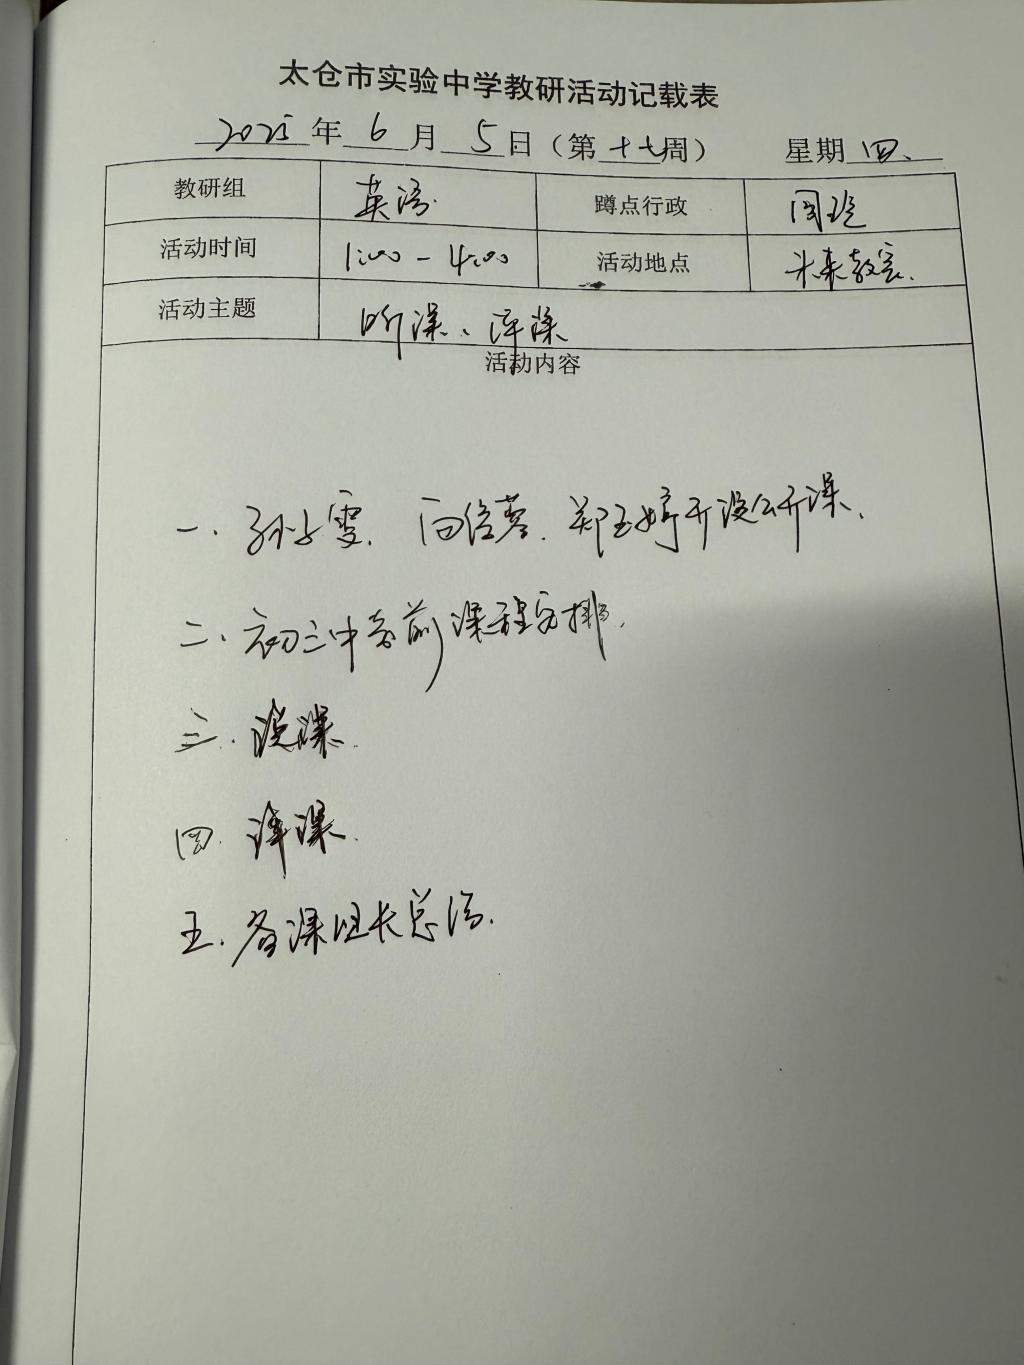 太仓市实验中学教研活动记载表
2025年 6 月 5 日（第 十七 周） 星期 四、
教研组 英语 蹲点行政 周
活动时间 1:00 - 4:00 活动地点 未来教室.
活动主题 听课、评课
活动内容
一. 孙 雯. 郑玉婷开设公开课.
二. 初三中考前课程安排.
三. 说课.
四. 评课.
五. 备课组长总结.